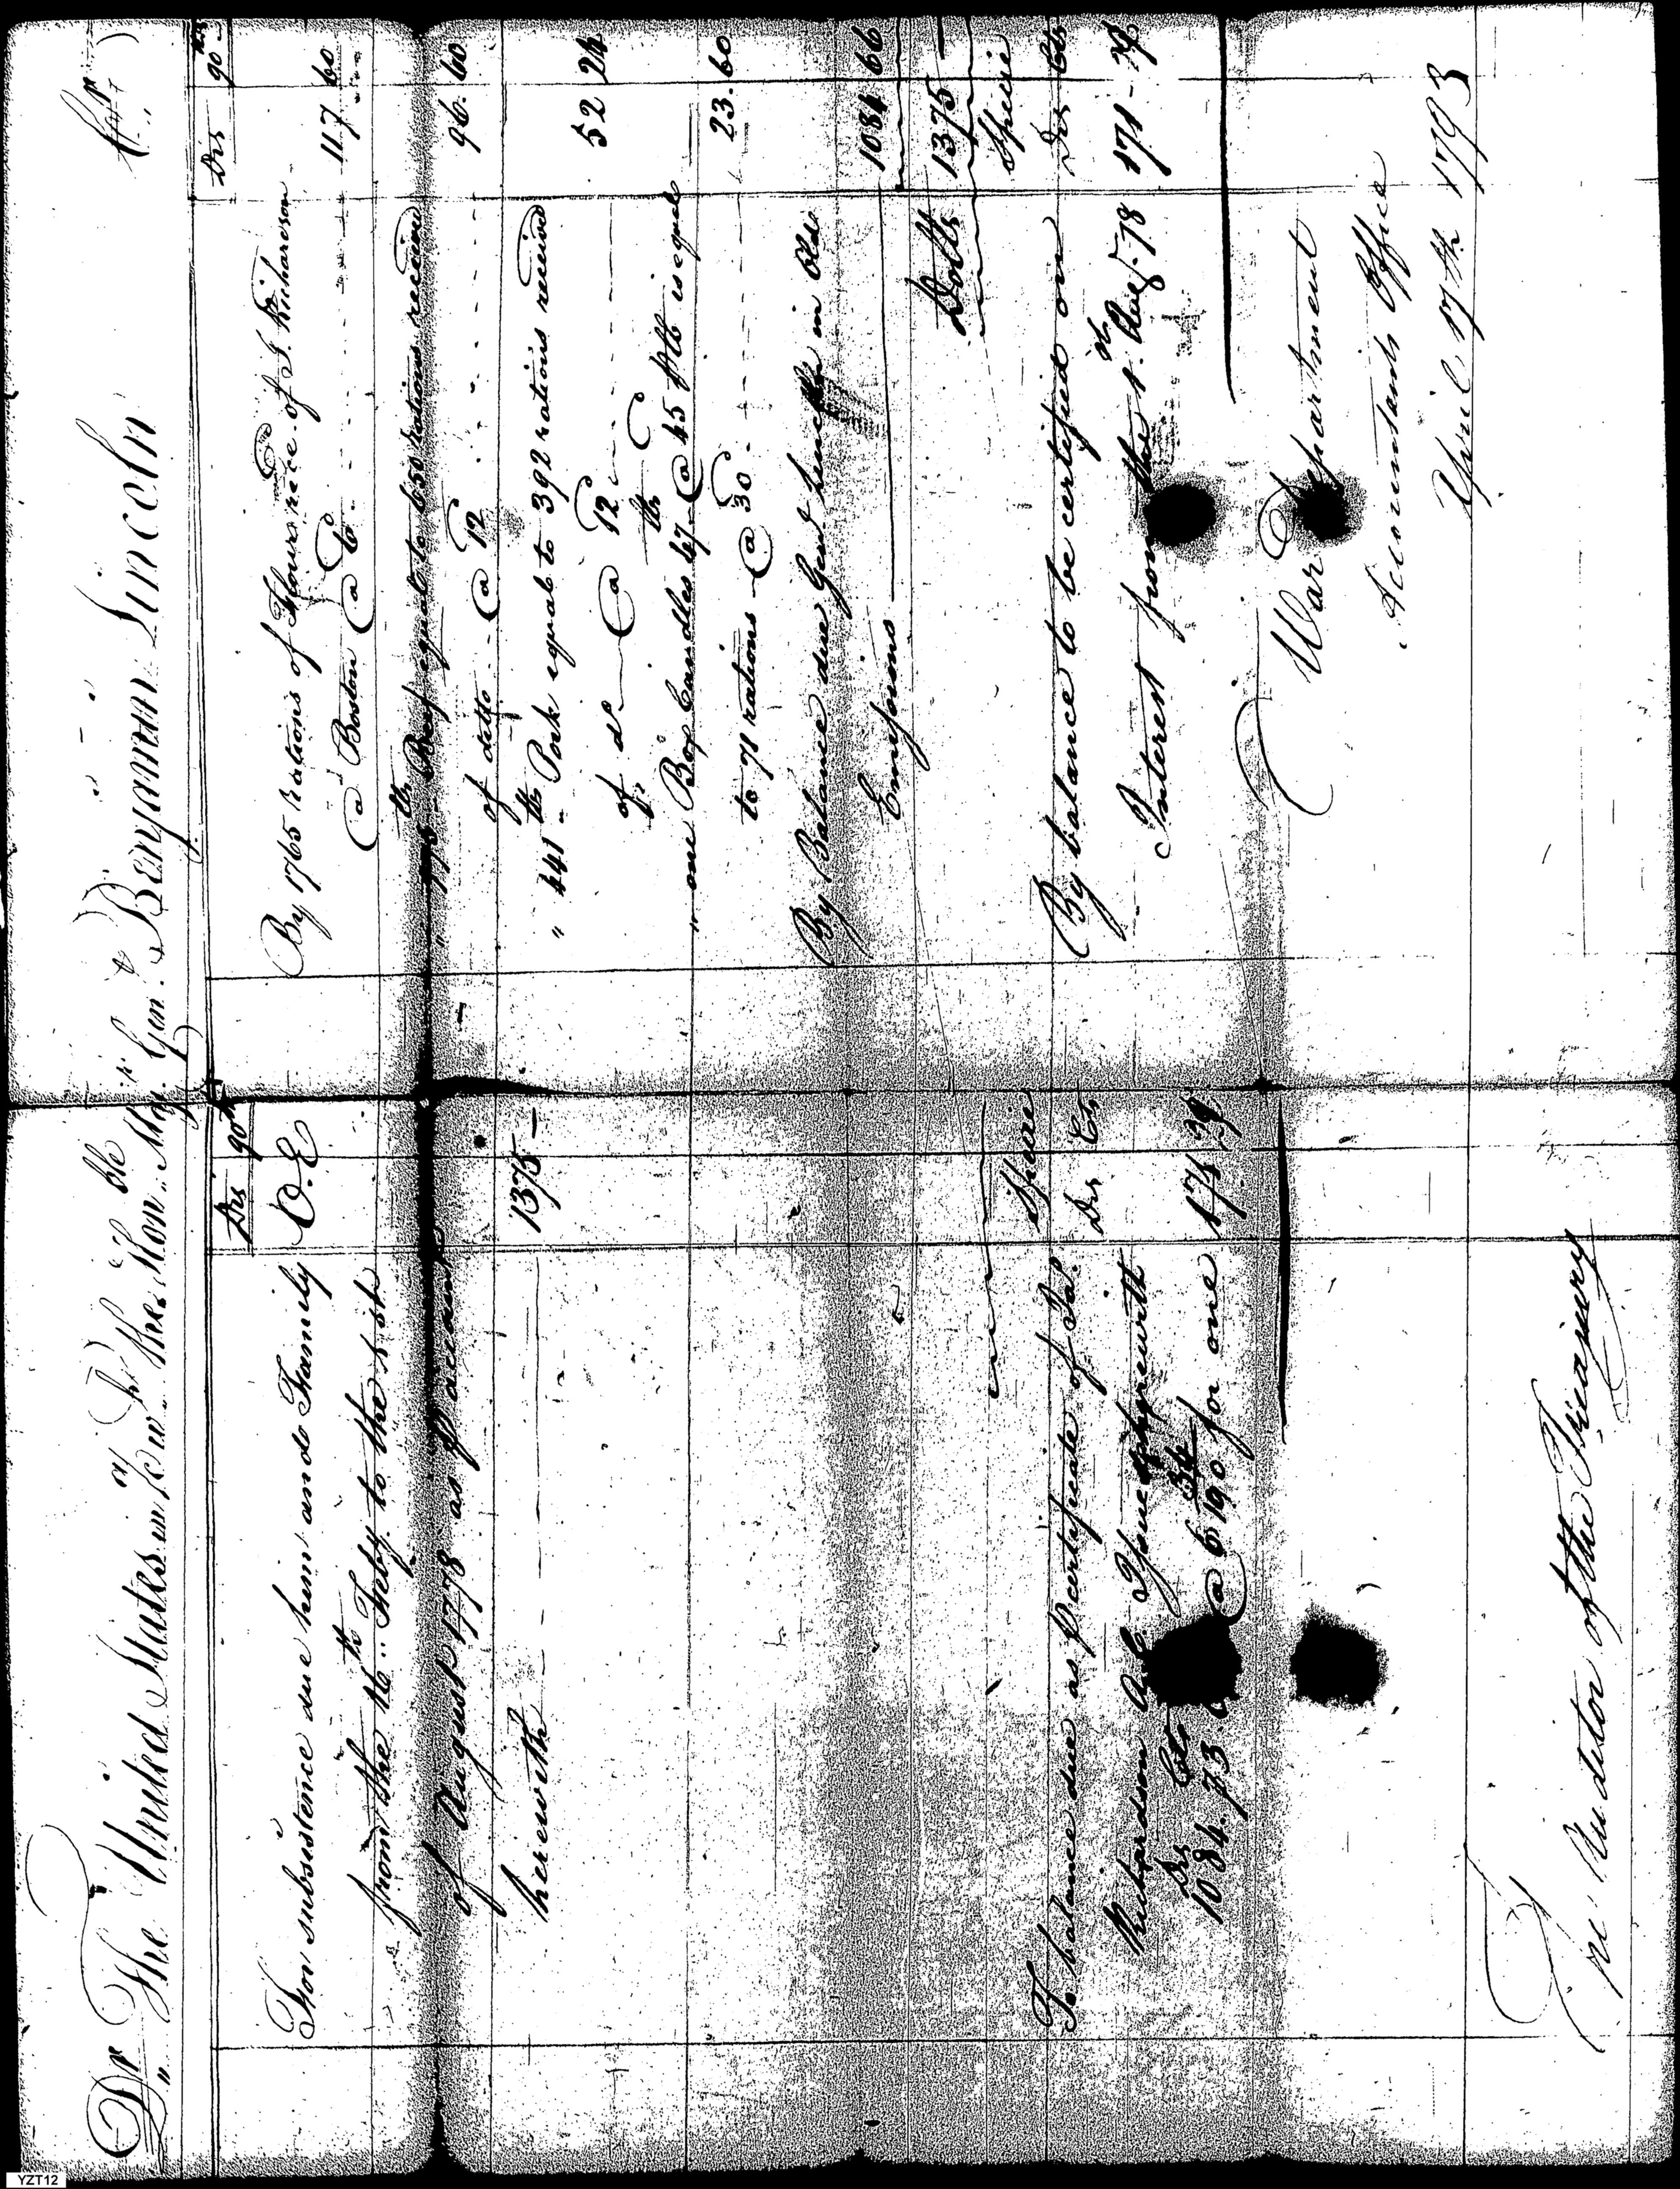 Dr The United States in Acct. with the Honble. Maj. Genl. Benjamin Lincoln Cr
Drs 90ths
For subsistence due him and Family O.E
from the 16th Feby. to the 1st
of August 1778 as P account
herewith 1375 -
Specie
Drs Cts
To balance due as P certificate of Jas.
Richardson
Drs Cts
1084. 73. @ 6 34/90 for one 171 .
The Auditor of the Treasury
Drs 90ths
By 1765 rations of Flour rece. of J. Richardson
a Boston @ 6 117 60
lb Beef equal to 650 rations received
of ditto @ 12 96. 60
" 441 lb Pork equal to 392 rations received
of do @ 12 52 24
" one Box Candles 47 lb @ 45 P lb is equal
to 71 rations @ 30 23. 60
By Balance due Genl Lincoln in Old
Emissions 1084 66
Dolls 1375 -
Specie
Drs Cts
By balance to be certified on
Interest from the 1st Aug. 78 171 -
War Department
Accountants Office
April 17th 1793
YZT12